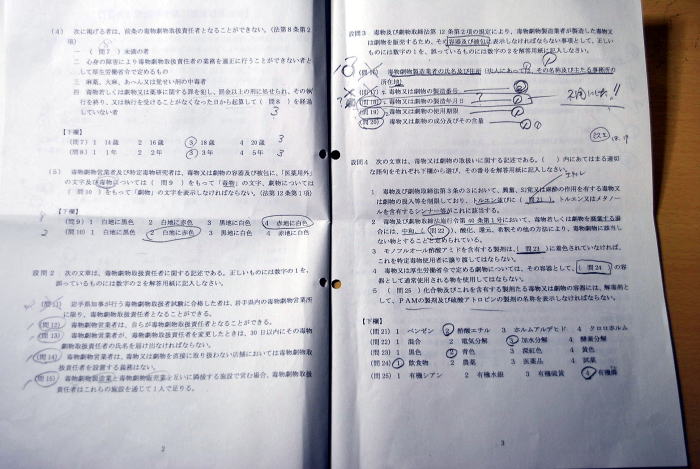 (4) 次に掲げる者は、前条の毒物劇物取扱責任者となることができない。(法第8条第2
項)
一 (問7)未満の者
二 心身の障害により毒物劇物取扱責任者の業務を適正に行うことができない者と
して厚生労働省令で定めるもの
三 麻薬、大麻、あへん又は覚せい剤の中毒者
四 毒物若しくは劇物又は薬事に関する罪を犯し、罰金以上の刑に処せられ、その執
行を終り、又は執行を受けることがなくなった日から起算して(問8)を経過
していない者
3
【下欄】
(問7) 1 14歳 2 16歳 3 18歳 4 20歳 3
(問8) 1 1年 2 2年 3 3年 4 5年 3
(5) 毒物劇物営業者及び特定毒物研究者は、毒物又は劇物の容器及び被包に、「医薬用外」
の文字及び毒物については(問9)をもって「毒物」の文字、劇物については
(問10)をもって「劇物」の文字を表示しなければならない。(法第12条第1項)
【下欄】
(問9) 1 白地に黒色 2 白地に赤色 3 黒地に白色 4 赤地に白色
(問10) 1 白地に黒色 2 白地に赤色 3 黒地に白色 4 赤地に白色
設問2 次の文章は、毒物劇物取扱責任者に関する記述である。正しいものには数字の1を、
誤っているものには数字の2を解答用紙に記入しなさい。
(問11) 岩手県知事が行う毒物劇物取扱者試験に合格した者は、岩手県内の毒物劇物営業所
に限り、毒物劇物取扱責任者となることができる。
(問12) 毒物劇物営業者は、自らが毒物劇物取扱責任者となることができる。
(問13) 毒物劇物営業者が、毒物劇物取扱責任者を変更したときは、30日以内にその毒物
劇物取扱責任者の氏名を届け出なければならない。
(問14) 毒物劇物営業者は、毒物又は劇物を直接に取り扱わない店舗においては毒物劇物取
扱責任者を設置する義務はない。
(問15) 毒物劇物製造業と毒物劇物販売業を互いに隣接する施設で営む場合、毒物劇物取
扱責任者はこれらの施設を通じて1人で足りる。
2
設問3 毒物及び劇物取締法第12条第2項の規定により、毒物劇物製造業者が製造した毒物又
は劇物を販売するため、その容器及び被包に表示しなければならない事項として、正しい
ものには数字の1を、誤っているものには数字の2を解答用紙に記入しなさい。
(問16) 毒物劇物製造業者の氏名及び住所(法人にあっては、その名称及び主たる事務所の
所在地)
(問17) 毒物又は劇物の製造番号
(問18) 毒物又は劇物の製造年月日
(問19) 毒物又は劇物の使用期限
(問20) 毒物又は劇物の成分及びその含量
設問4 次の文章は、毒物又は劇物の取扱いに関する記述である。( )内にあてはまる適切
な語句をそれぞれ下欄から選び、その番号を解答用紙に記入しなさい。
1 毒物及び劇物取締法第3条の3において、興奮、幻覚又は麻酔の作用を有する毒物又
は劇物の吸入等を制限しており、トルエン並びに(問21)、トルエン又はメタノー
ルを含有するシンナー等がこれに該当する。
2 毒物及び劇物取締法施行令第40条第1号において、毒物若しくは劇物を廃棄する場
合には、中和、(問22)、酸化、還元、希釈その他の方法により、毒物劇物に該当し
ない物とすることと定められている。
3 モノフルオール酢酸アミドを含有する製剤は、(問23)に着色されていなければ、
これを特定毒物使用者に譲り渡してはならない。
4 毒物又は厚生労働省令で定める劇物については、その容器として、(問24)の容
器として通常使用される物を使用してはならない。
5 (問25)化合物及びこれを含有する製剤たる毒物又は劇物の容器には、解毒剤とし
て、PAMの製剤及び硫酸アトロピンの製剤の名称を表示しなければならない。
【下欄】
(問21) 1 ベンゼン 2 酢酸エチル 3 ホルムアルデヒド 4 クロロホルム
(問22) 1 混合 2 電気分解 3 加水分解 4 酵素分解
(問23) 1 黒色 2 青色 3 深紅色 4 黄色
(問24) 1 飲食物 2 農薬 3 医薬品 4 試薬
(問25) 1 有機シアン 2 有機水銀 3 有機硫黄 4 有機燐
3